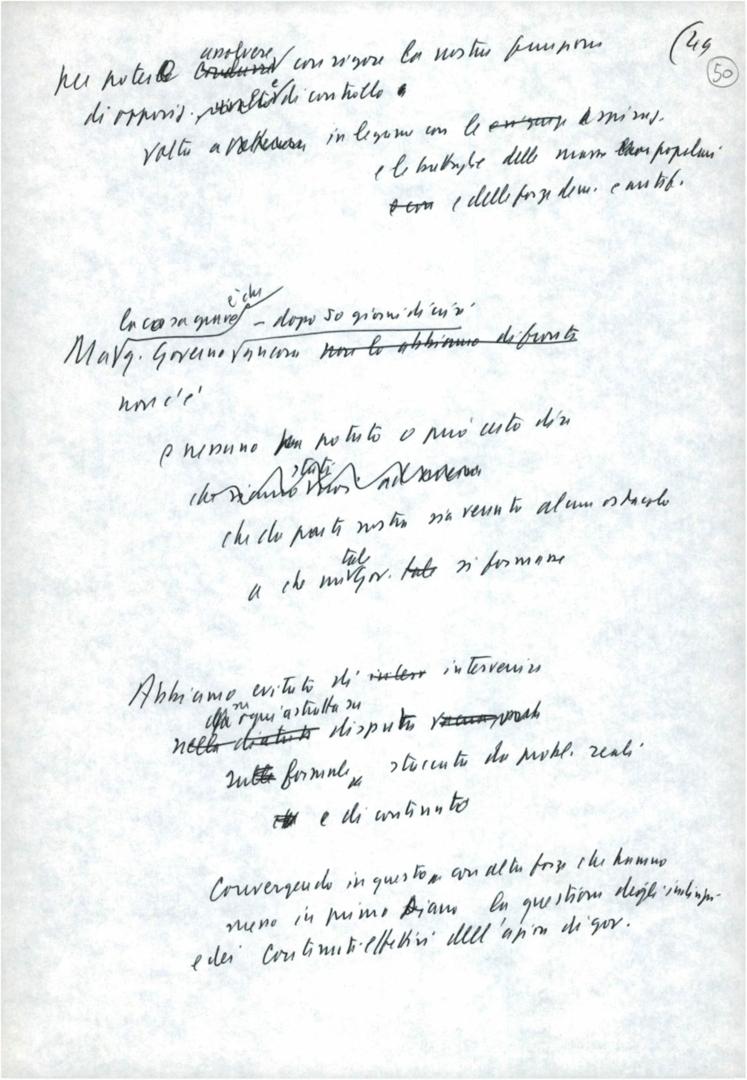 (49
50
assolvere
per potere condurre con rigore la nostra funzione
di opposiz. e di controllo
volta a in legame con le esigenze aspiraz.
e le battaglie delle masse popolari
e con e delle forze dem. e antif.
la cosa grave è che – dopo 50 giorni di crisi
Ma q. Governo ancora non lo abbiamo di fronte
non c'è
e nessuno ha potuto o può certo dire
stati
che siamo
che da parte nostra sia venuto alcun ostacolo
tale
a che un Gov. tale si formasse
Abbiamo evitato di interv intervenire
in ogni astratta su
nella diatriba disputa
sulle formule, staccata da probl. reali
e di contenuto
Convergendo in questo con altre forze che hanno
messo in primo piano la questione degli indirizzi
e dei contenuti effettivi dell'azione di gov.